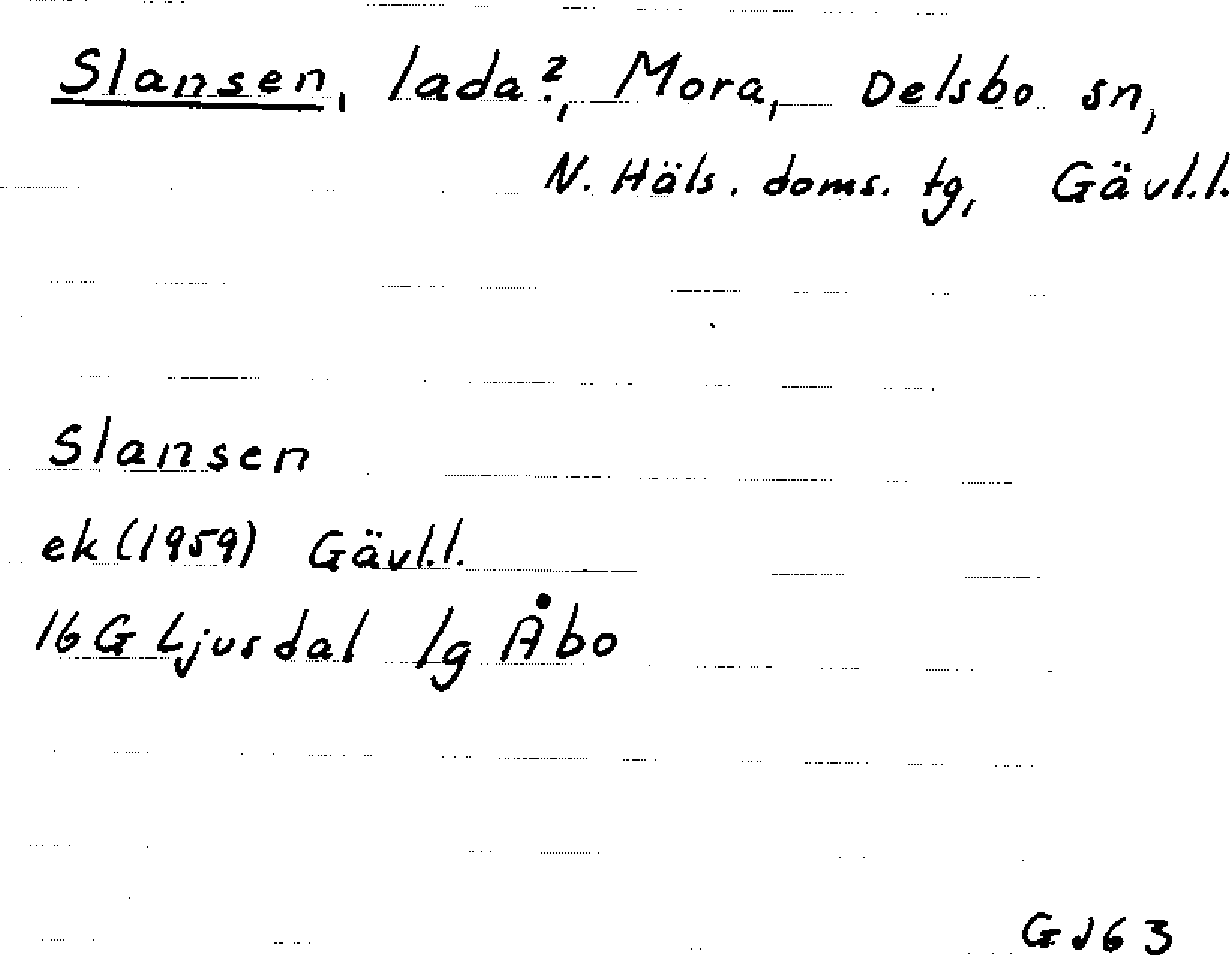 Slansen, lada?, Mora, Delsbo sn,
N. Häls. doms. tg, Gävl.l.
Slansen
ek (1959) Gävl.l.
16G Ljusdal lg Åbo
GJ63